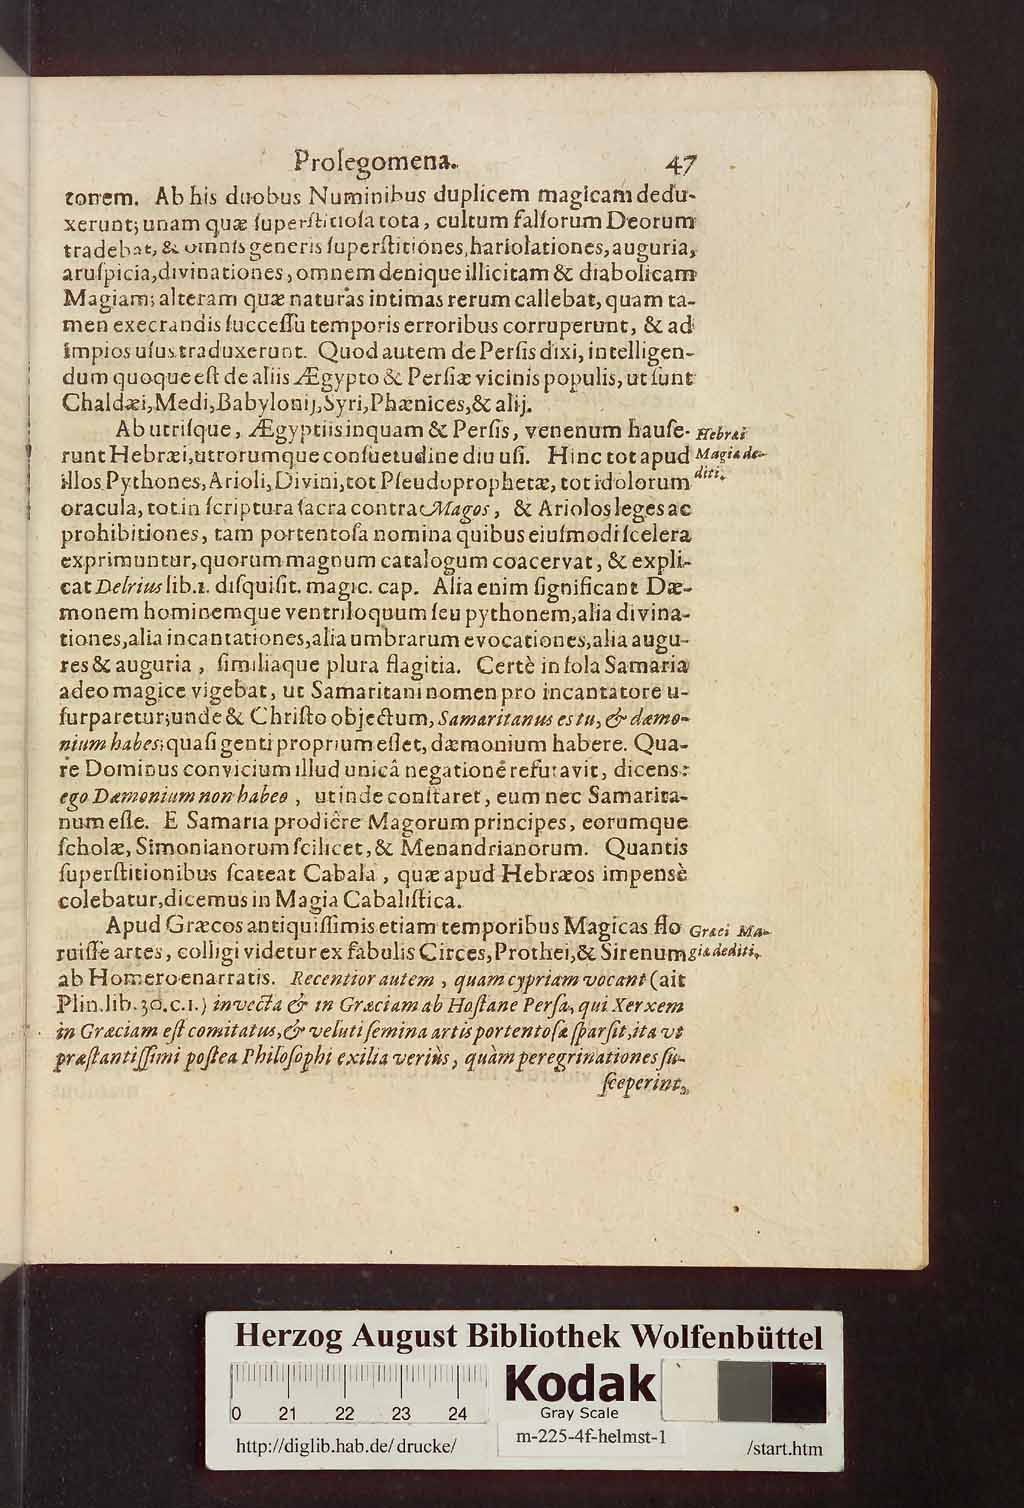 Prolegomena. 47
torrem. Ab his duobus Numinibus duplicem magicam dedu-
xerunt; unam quæ ſuperſtitioſa tota, cultum falſorum Deorum
tradebat, & omnis generis ſuperſtitiones, hariolationes, auguria,
aruſpicia, divinationes, omnem denique illicitam & diabolicam
Magiam; alteram quæ naturas intimas rerum callebat, quam ta-
men execrandis ſucceſſu temporis erroribus corruperunt, & ad
impios uſus traduxerunt. Quod autem de Perſis dixi, intelligen-
dum quoque eſt de aliis Ægypto & Perſiæ vicinis populis, ut ſunt
Chaldæi, Medi, Babylonij, Syri, Phænices, & alij.
Ab utriſque, Ægyptiis inquam & Perſis, venenum hauſe-
runt Hebræi, utrorumque conſuetudine diu uſi. Hinc tot apud
illos Pythones, Arioli, Divini, tot Pſeudoprophetæ, tot idolorum
oracula, tot in ſcriptura ſacra contra Magos, & Ariolos leges ac
prohibitiones, tam portentoſa nomina quibus eiuſmodi ſcelera
exprimuntur, quorum magnum catalogum coacervat, & expli-
cat Delrius lib. 1. diſquiſit. magic. cap. Alia enim ſignificant Dæ-
monem hominemque ventriloquum ſeu pythonem, alia divina-
tiones, alia incantationes, alia umbrarum evocationes, alia augu-
res & auguria, ſimiliaque plura flagitia. Certè in ſola Samaria
adeo magice vigebat, ut Samaritani nomen pro incantatore u-
ſurparetur; unde & Chriſto objectum, Samaritanus es tu, & dæmo-
nium habes; quaſi genti proprium eſſet, dæmonium habere. Qua-
re Dominus convicium illud unicâ negatione refutavit, dicens:
ego Dæmonium non habeo, ut inde conſtaret, eum nec Samarita-
num eſſe. E Samaria prodiêre Magorum principes, eorumque
ſcholæ, Simonianorum ſcilicet, & Menandrianorum. Quantis
ſuperſtitionibus ſcateat Cabala, quæ apud Hebræos impensè
colebatur, dicemus in Magia Cabaliſtica.
Apud Græcos antiquiſſimis etiam temporibus Magicas flo
ruiſſe artes, colligi videtur ex fabulis Circes, Prothei, & Sirenum
ab Homero enarratis. Recentior autem, quam cypriam vocant (ait
Plin. lib. 30. c. 1.) invecta & in Græciam ab Hoſtane Perſa, qui Xerxem
in Græciam eſt comitatus, & veluti ſemina artis portentoſæ ſparſit, ita vt
præſtantiſſimi poſtea Philoſophi exilia veriùs, quàm peregrinationes ſu-
ſceperint,
Hebræi
Magiæ de-
diti.
Græci Ma-
giæ dediti.
Herzog August Bibliothek Wolfenbüttel
0 21 22 23 24
Kodak
Gray Scale
http://diglib.hab.de/drucke/ m-225-4f-helmst-1 /start.htm